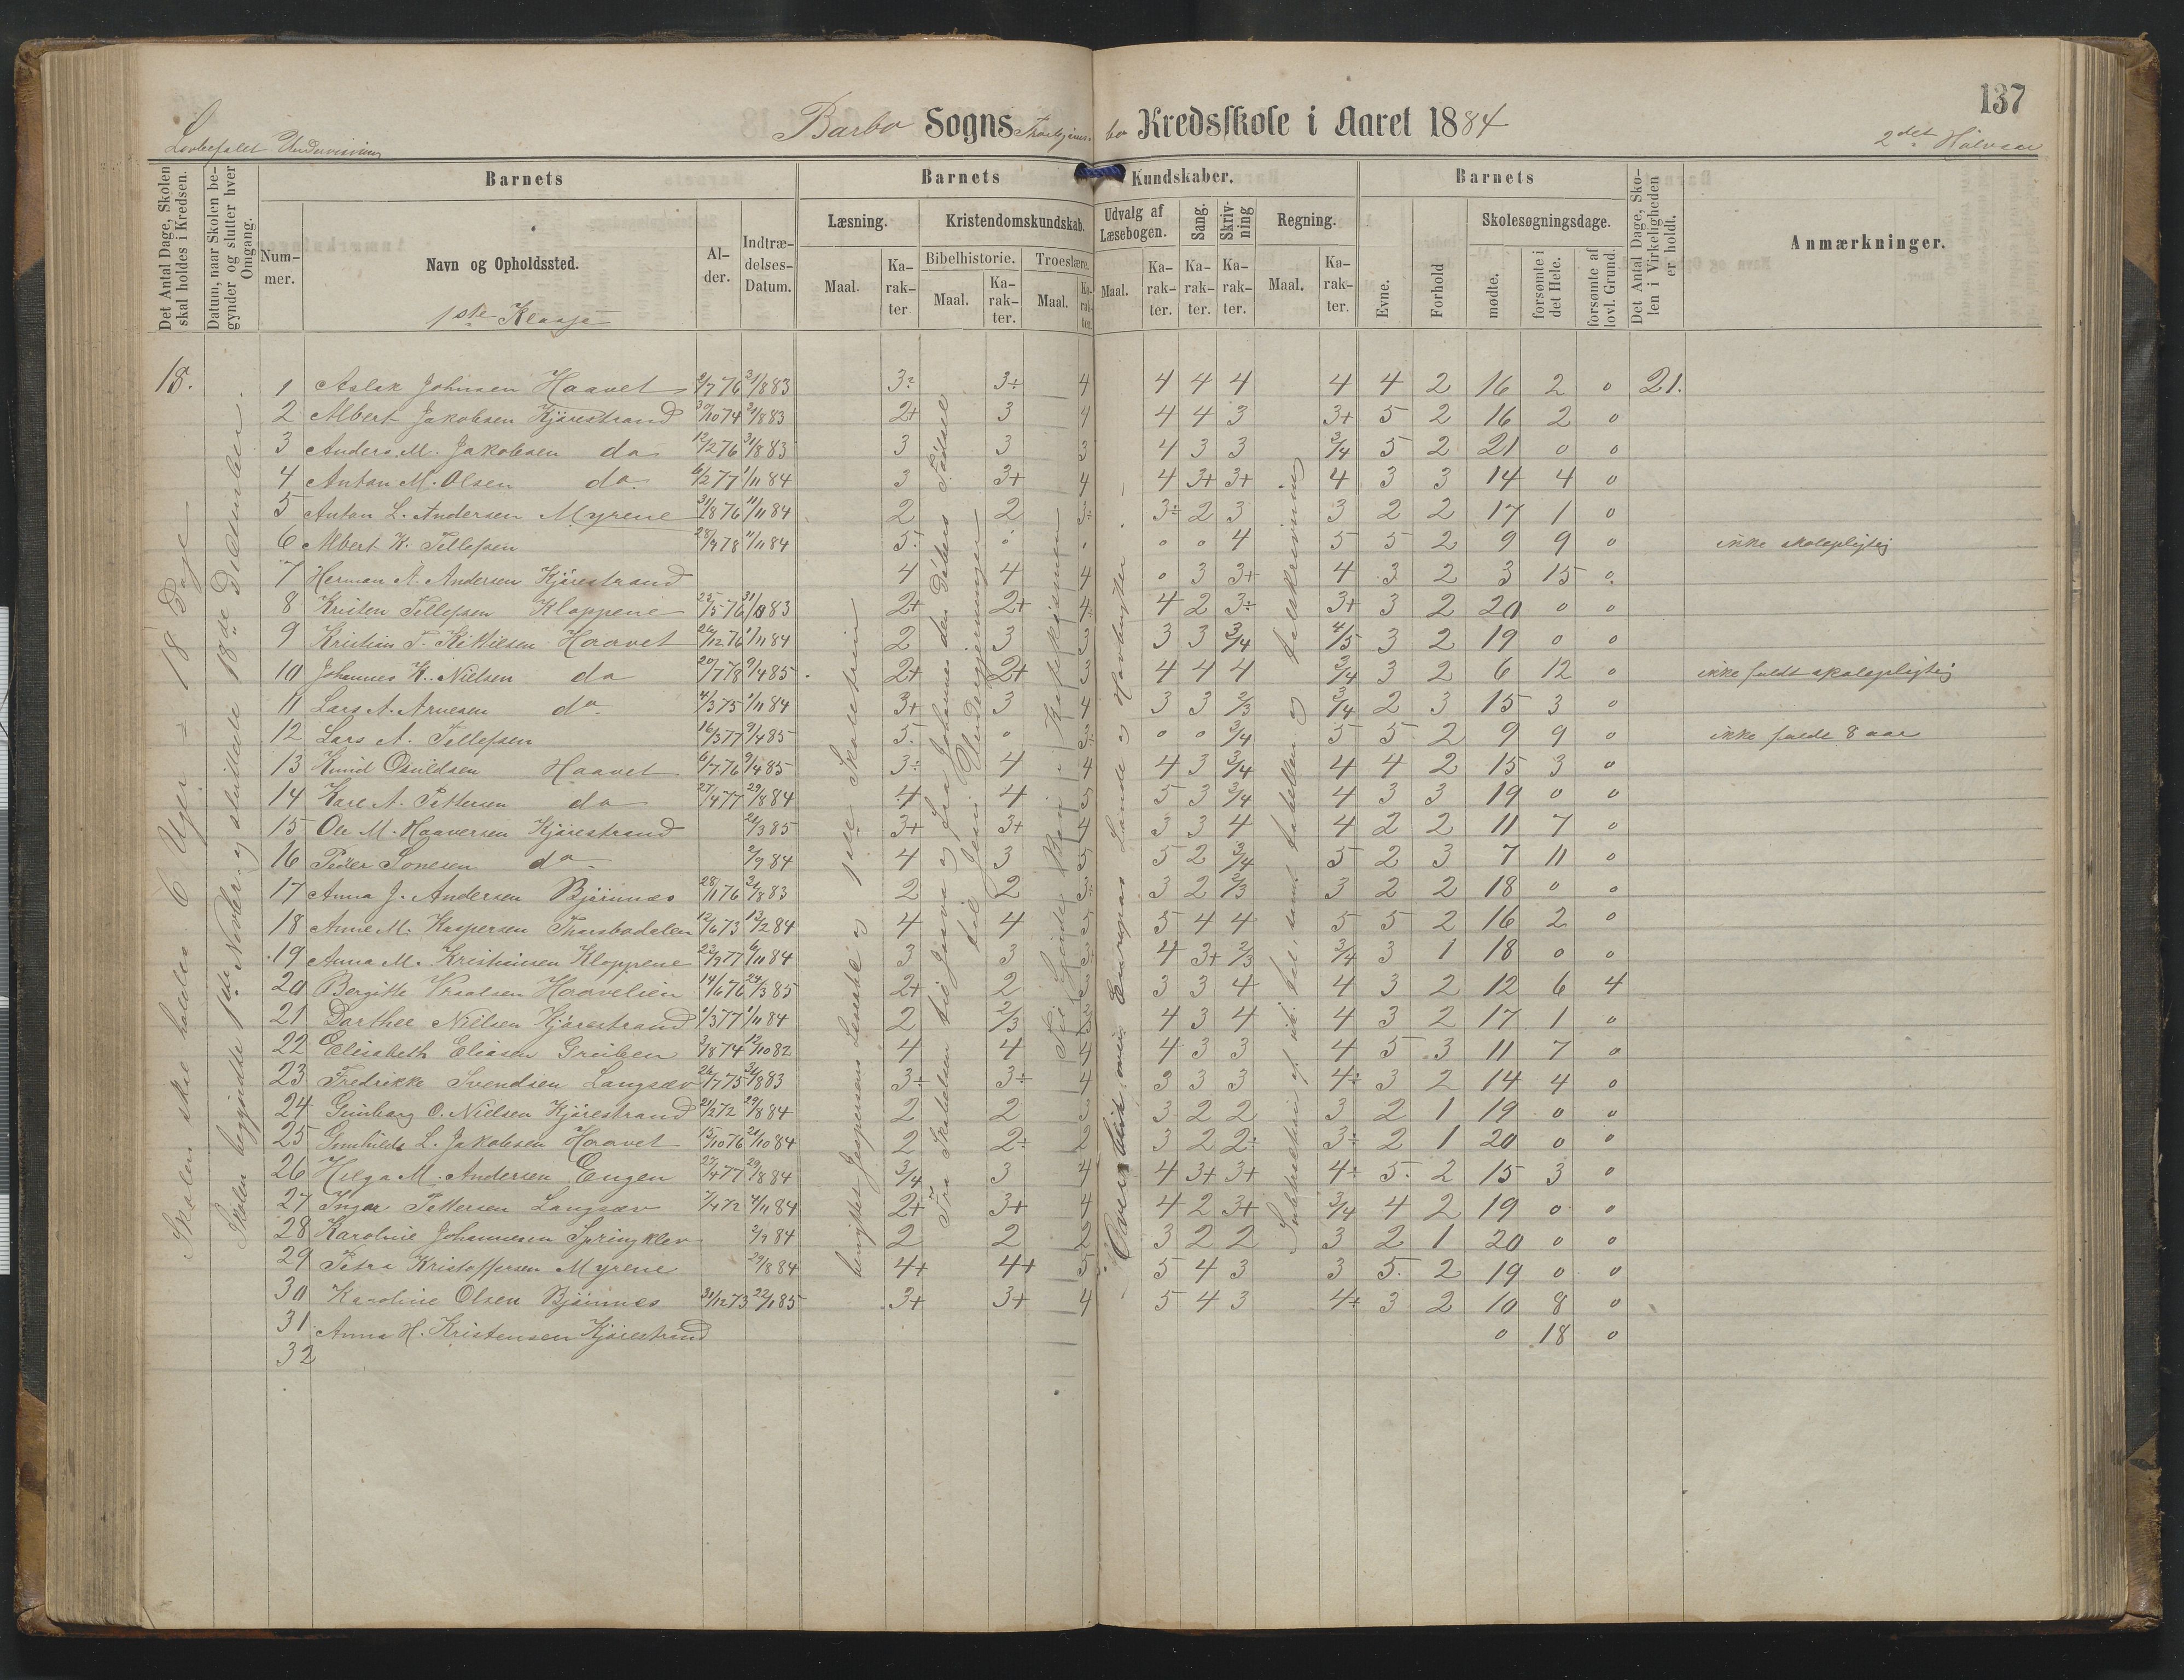 137
Barbo Sogns Kredsskole i Aaret 1884
Lovbefalet Undervisning
2det Halvaar
Det Antal Dage, Skolen skal holdes i Kredsen.
Datum, naar Skolen begynder og slutter hver Omgang.
Barnets
Barnets Kundskaber.
Barnets
Det Antal Dage, Skolen i Virkeligheden er holdt.
Anmærkninger.
Nummer.
Navn og Opholdssted.
Alder.
Indtrædelses-Datum.
Læsning.
Kristendomskundskab.
Udvalg af Læsebogen.
Sang.
Skrivning
Regning.
Evne.
Forhold
Skolesøgningsdage.
Bibelhistorie.
Troeslære.
Maal.
Karakter
Maal.
Karakter.
Maal.
Karakter.
Maal.
Karakter.
Karakter.
Karakter.
Maal.
Karakter.
mødte.
forsømte i det Hele.
forsømte af lovl. Grund.
1ste Klasse
18.
Skolen skal holdes 6 Uger = 18 Dage
Skolen begyndte 1ste Novbr. og sluttede 18de December.
benyttet Jespersens Læsebog og 1ste Skoletrin
Fra Skabelsen til Josva og fra Johannes den Døbers Fødsel
til Jesu Undergjerninger
Overblik over Europas Lande og Havbugter
1 Aslak Johnsen Haavet 2/7 76 31/8 83 3÷ 3÷ 4 4 4 4 4 4 2 16 2 0 21.
2 Albert Jakobsen Kjørestrand 30/10 74 31/8 83 2+ 3 4 4 4 3 3+ 5 2 16 2 0
3 Anders M. Jakobsen do 12/2 76 31/8 83 3 3 3 4 3 3 3/4 5 2 21 0 0
4 Anton M. Olsen do. 6/2 77 1/11 84 3 3+ 4 4 3+ 3+ 4 3 3 14 4 0
5 Anton L. Andersen Myrene 31/8 76 11/11 84 2 2 3÷ 3÷ 2 3 3 2 2 17 1 0
6 Albert K. Tellefsen 28/9 78 11/11 84 5÷ 0 0 0 4 5 5 2 9 9 0 ikke skolepligtig
7 Herman A. Andersen Kjørestrand 4 4 4 0 3 3+ 4 3 2 3 15 0
8 Kristen Tellefsen Kloppene 25/5 76 31/8 83 2+ 2+ 4 4 2 3÷ 3+ 3 2 20 0 0
9 Kristian T. Kittilsen Haavet 26/12 76 1/11 84 2 3 3 3 3 3/4 4/5 3 2 19 0 0
10 Johannes K. Nielsen do 20/7 78 9/4 85 2+ 2+ 3 4 4 4 3/4 3 2 6 12 0 ikke fuldt skolepligtig
11 Lars A. Arnesen do. 4/3 75 1/11 84 3+ 3 4 3 3 2/3 3/4 2 3 15 3 0
12 Lars A. Tellefsen 16/3 77 9/4 85 5 0 3÷ 0 0 3/4 5 5 2 9 9 0 ikke fuldt 8 aar
13 Knud Osuldsen Haavet 6/7 76 9/4 85 3÷ 4 4 4 3 3/4 4 4 2 15 3 0
14 Karl A. Pettersen do 27/4 77 29/8 84 4 4 5 5 3 3/4 4 3 3 19 0 0
15 Ole M. Haaversen Kjørestrand 20/3 85 3+ 3+ 4 3 3 4 4 2 2 11 7 0
16 Peder Sonesen do 2/9 84 4 3 5 5 2 3/4 5 2 3 7 11 0
17 Anna J. Andersen Bjørnnes 28/1 76 31/8 83 2 2 3÷ 3 2 2/3 3 2 2 18 0 0
18 Anne M. Kaspersen Thorsbodalen 12/6 73 13/2 84 4 4 5 5 4 4 5 5 2 16 2 0
19 Anna M. Kristiansen Kloppene 23/9 77 6/11 84 3 3 3 4 3+ 2/3 3/4 3 1 18 0 0
20 Bergitte Vraalsen Haavelien 14/6 76 24/3 85 2+ 2 3 3 3 4 4 3 2 12 6 4
21 Dorthee Nielsen Kjørestrand 1/3 77 1/11 84 2 2/3 3 4 3 4 4 3 2 17 1 0
22 Elisabeth Eliasen Greiben 3/8 74 12/10 82 4 4 4 4 3 3 4 5 3 11 7 0
23 Fredrikke Svendsen Langsæv 26/7 75 31/8 83 3÷ 3÷ 4 3 3 3 4÷ 3 2 14 4 0
24 Gunborg O. Nielsen Kjørestrand 21/2 72 29/8 84 2 2 2 3 2 2 3 2 1 19 0 0
25 Gunhilde L. Jakobsen Haavet 15/10 76 21/10 84 2 2÷ 2 3 2 2÷ 3÷ 2 1 20 0 0
26 Helga M. Andersen Engen 27/4 77 29/8 84 3/4 3 4 4 3+ 3+ 4÷ 5 2 15 3 0
27 Inger Pettersen Langsæv 7/4 72 4/11 84 2+ 3+ 4 4 2 3+ 3/4 4 2 19 0 0
28 Karoline Johannesen Springklev 2/9 84 2 2 2 3 2 2 3 2 1 20 0 0
29 Petra Kristoffersen Myrene 29/8 84 4+ 4+ 5 5 4 3 3 5 2 19 0 0
30 Karoline Olsen Bjørnnes 31/12 73 22/1 85 3+ 3+ 4 5 4 3 4÷ 3 2 10 8 0
31 Anna H. Kristensen Kjørestrand 0 18 0
32